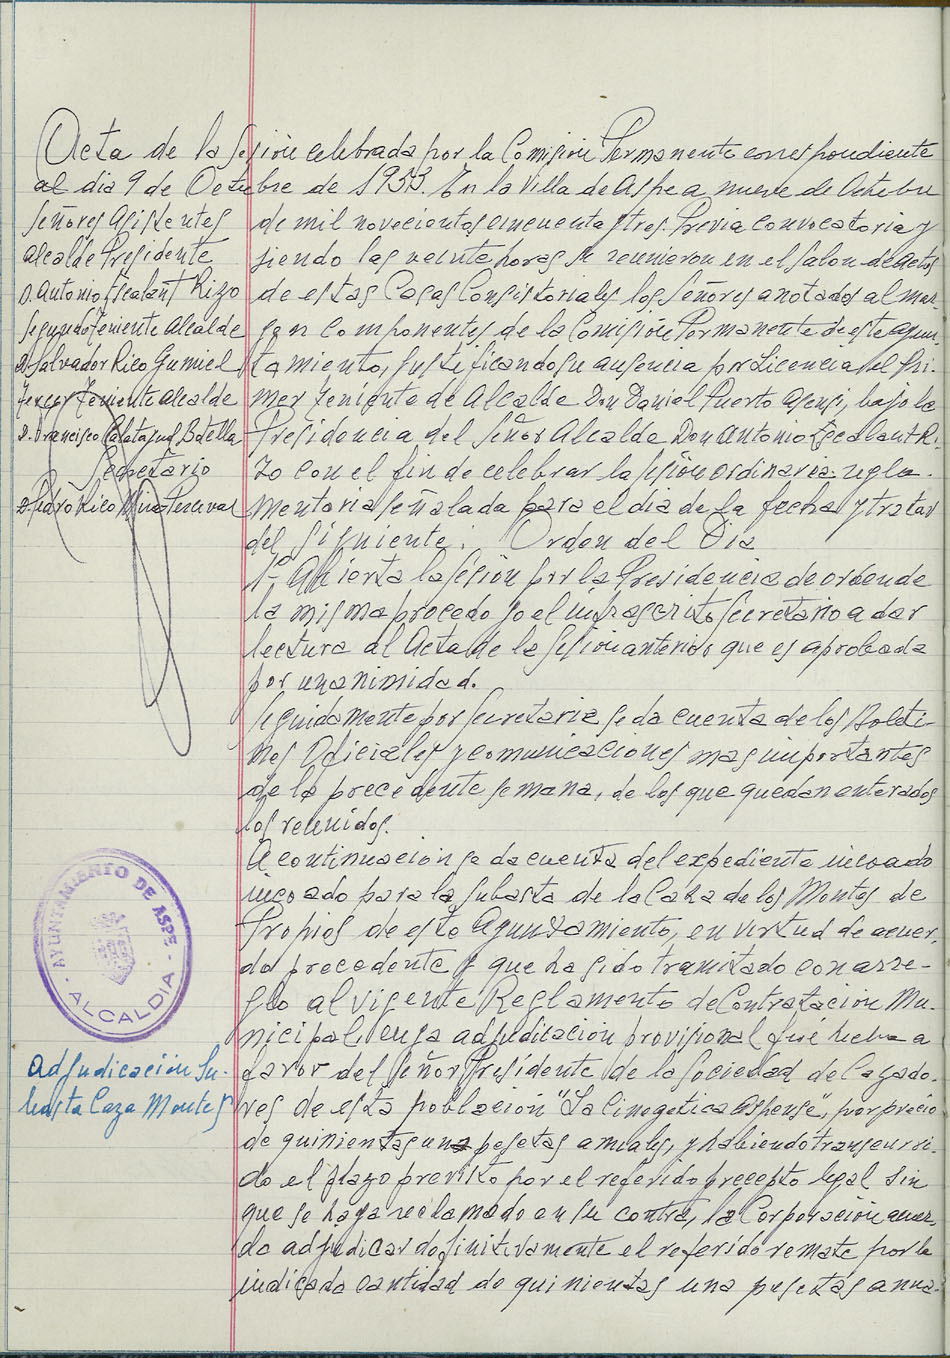 Acta de la Sesión celebrada por la Comisión Permanente correspondiente
al dia 9 de Octubre de 1953. En la Villa de Aspe a nueve de Octubre
Señores Asistentes
Alcalde Presidente
D. Antonio Escalant Rizo
Segundo Teniente Alcalde
D. Salvador Rico Gumiel
Tercer Teniente Alcalde
D. Francisco Calatayud Botella
Secretario
D. Pedro Rico Perceval
de mil novecientos cincuenta y tres. Previa convocatoria y
siendo las veinte horas se reunieron en el Salon de Actos
de estas Casas Consistoriales los Señores anotados al mar-
gen componentes de la Comisión Permanente de este Ayun-
tamiento, justificando su ausencia por Licencia el Pri-
mer Teniente de Alcalde Don Daniel Puerto Asensi, bajo la
Presidencia del Señor Alcalde Don Antonio Escalant Ri-
zo con el fin de celebrar la sesión ordinaria regla-
mentoria señalada para el dia de la fecha y tratar
del Siguiente. Orden del Dia
1º Abierta la sesión por la Presidencia de orden de
la misma procedo yo el infrascrito Secretario a dar
lectura al Acta de la Sesión anterior que es aprobada
por unanimidad.
Seguidamente por Secretaria se da cuenta de los Boleti-
nes Oficiales y comunicaciones mas importantes
de la precedente semana, de los que quedan enterados
los reunidos.
A continuación se da cuenta del expediente incoado
incoado para la Subasta de la Caza de los Montes de
Propios de este Ayuntamiento, en virtud de acuer-
do precedente y que ha sido tramitado con arre-
glo al vigente Reglamento de Contratación Mu-
nicipal, cuya adjuditación provisional fue hecha a
favor del Señor Presidente de la Sociedad de Cazado-
res de esta población "La Cinegetica Aspense", por precio
de quinientas una pesetas anuales, y habiendo transcurri-
do el plazo previsto por el referido precepto legal sin
que se haya reclamado en su contra, la Corporación acuer-
da adjudicar definitivamente el referido remate por la
indicada cantidad de quinientas una pesetas anua-
AYUNTAMIENTO DE ASPE
- ALCALDIA -
Adjudicación Su-
basta Caza Montes